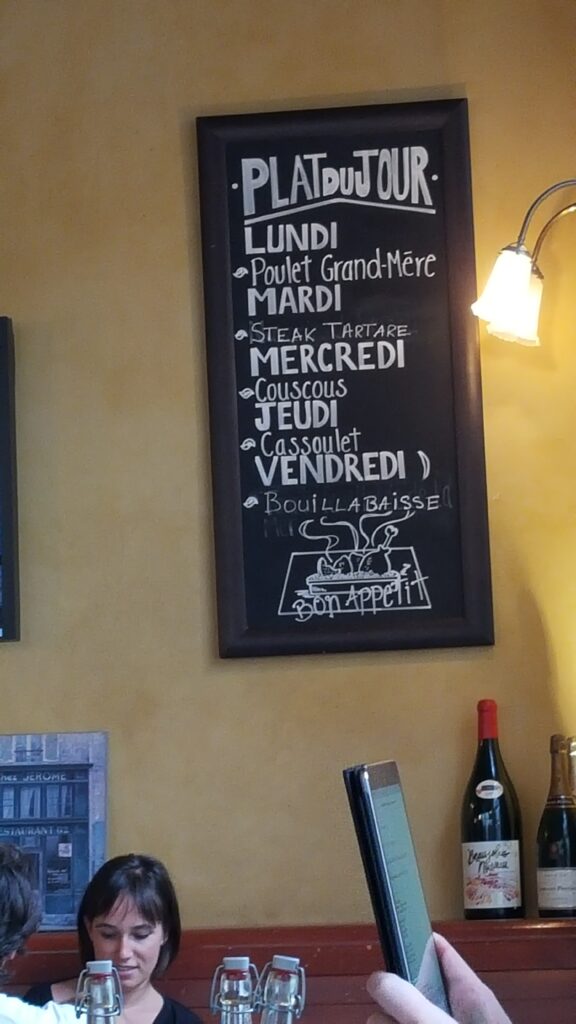 PLAT DU JOUR
LUNDI
Poulet Grand-Mēre
MARDI
STEAK TARTARE
MERCREDI
Couscous
JEUDI
Cassoulet
VENDREDI )
BOUILLABAISSE
Bon Appetit
Chez JEROME
RESTAURANT
Beaujolais
Nouveau